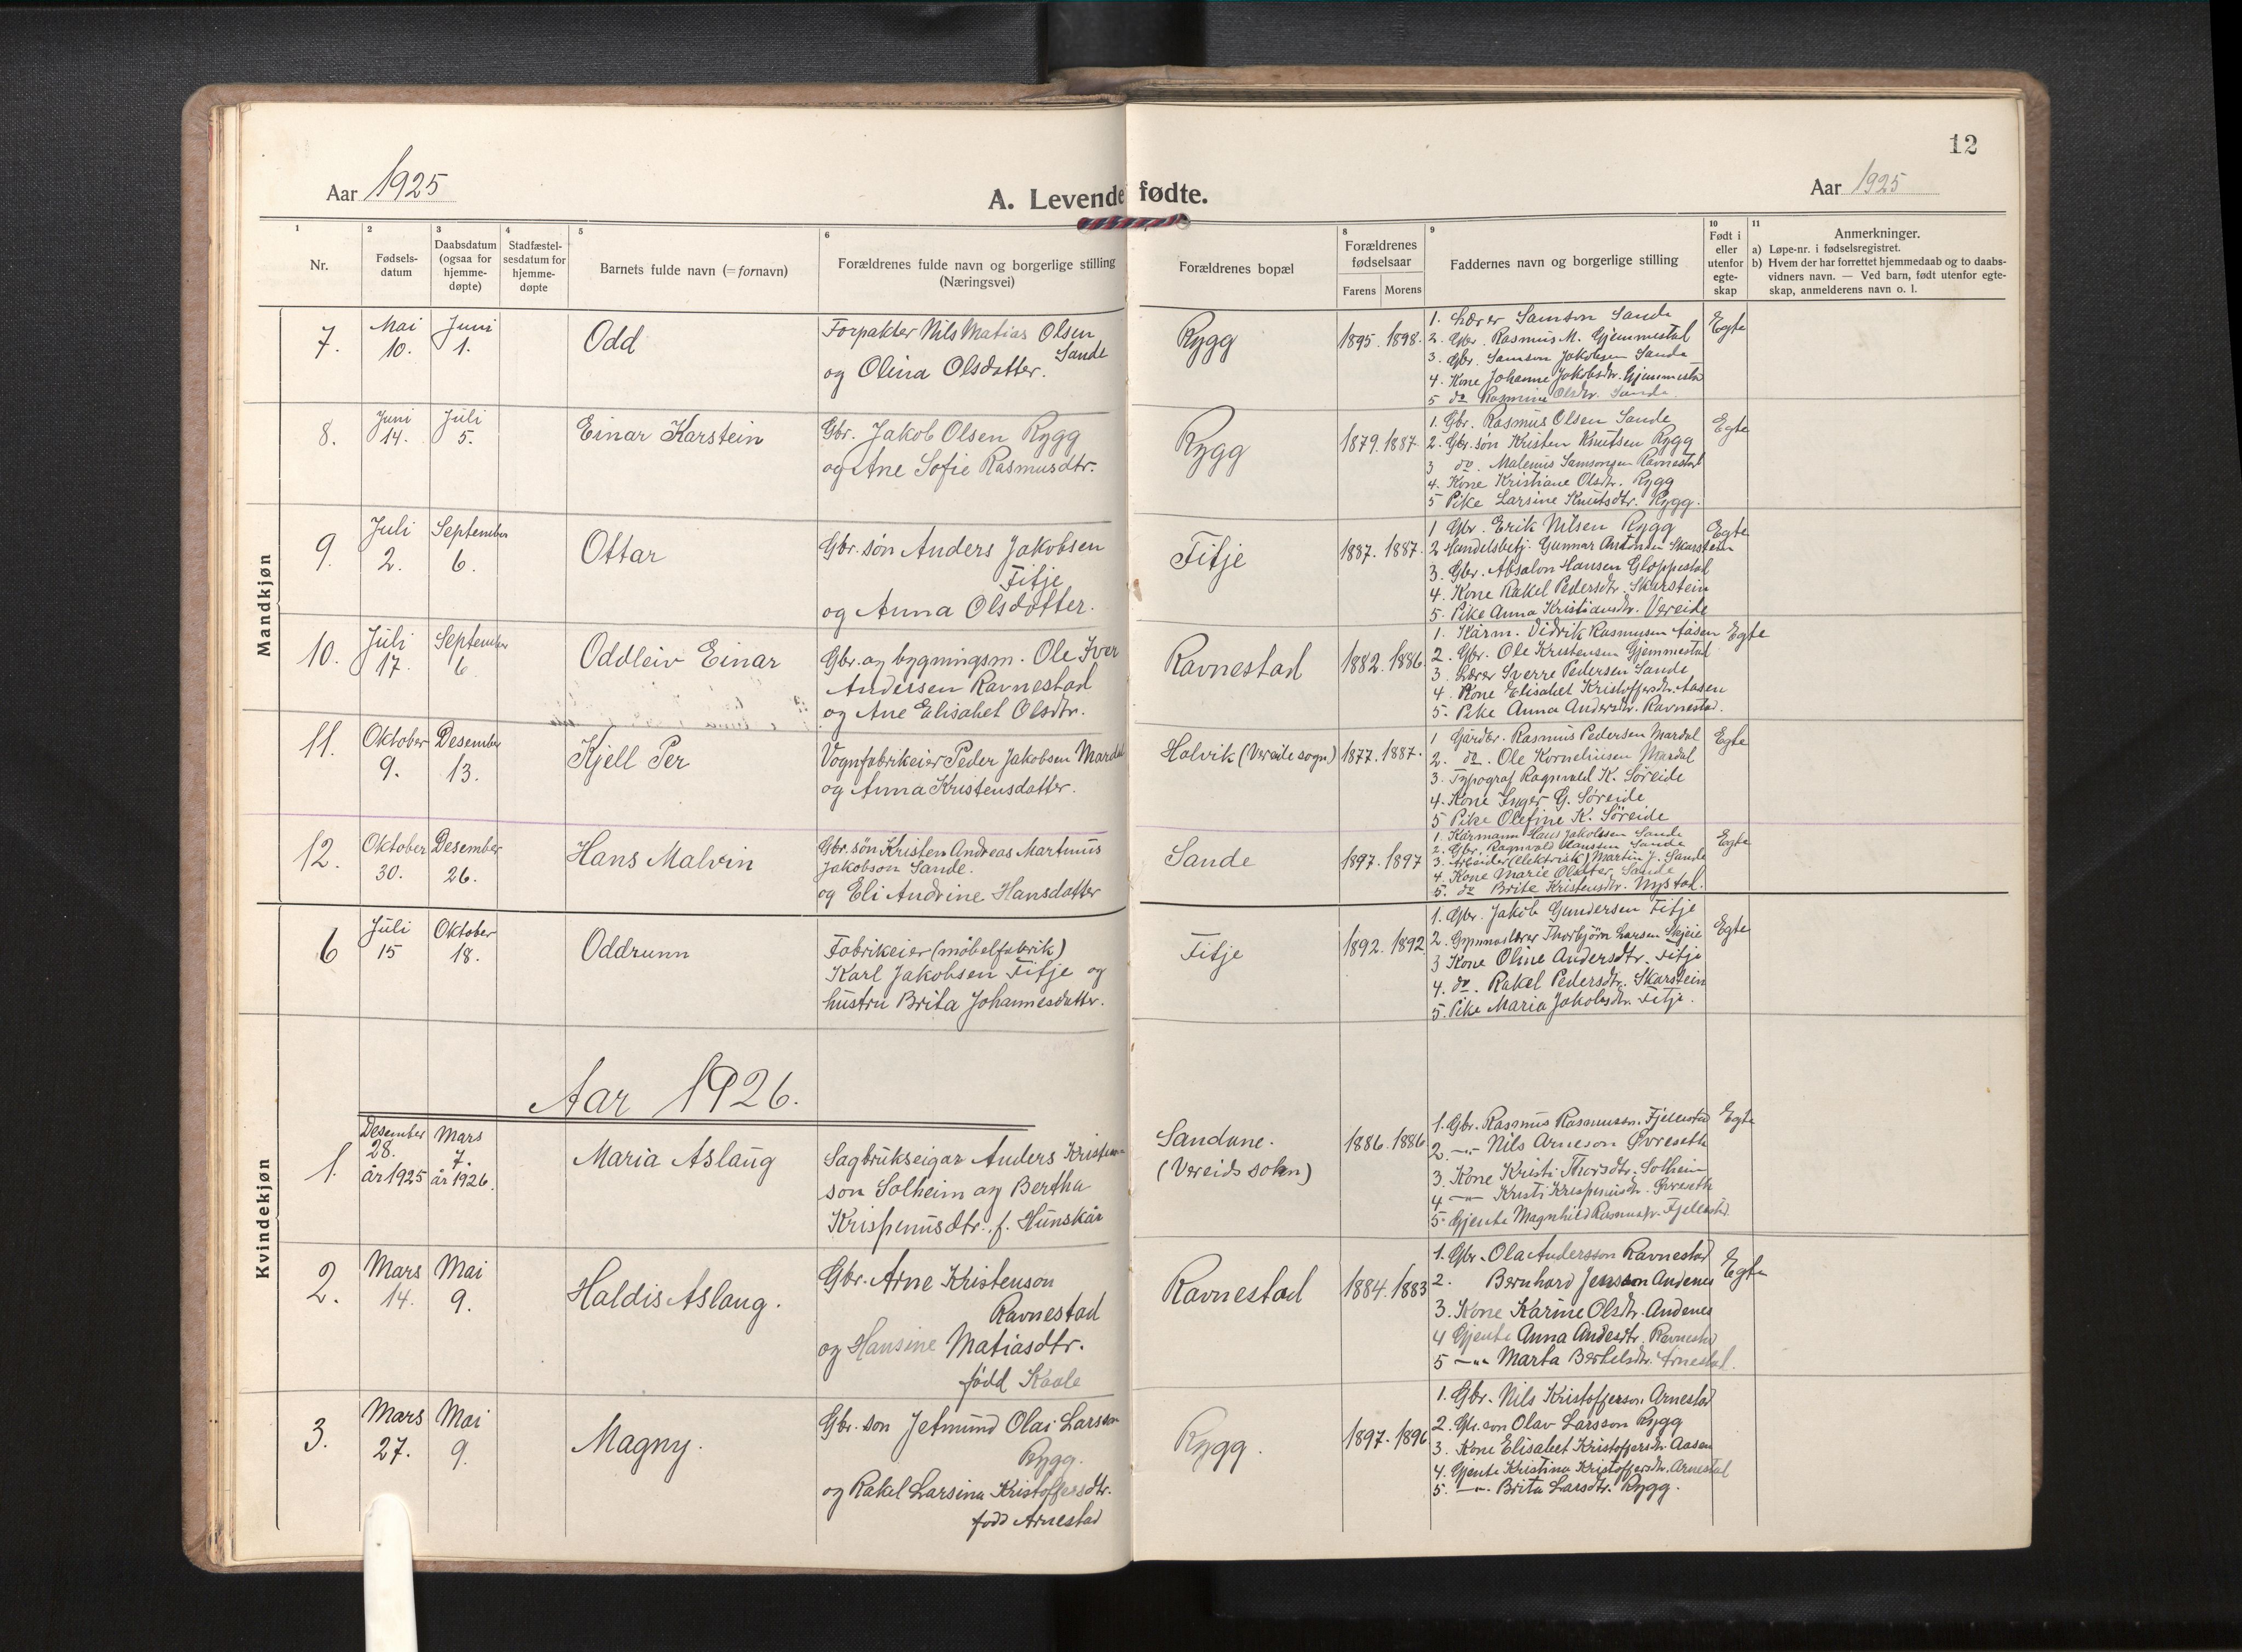 12
Aar 1925
A. Levende fødte.
Aar 1925
1
Nr.
2
Fødsels-
datum
3
Daabsdatum
(ogsaa for
hjemme-
døpte)
4
Stadfæstel-
sesdatum for
hjemme-
døpte
5
Barnets fulde navn (= fornavn)
6
Forældrenes fulde navn og borgerlige stilling
(Næringsvei)
Forældrenes bopæl
8
Forældrenes
fødselsaar
Farens
Morens
9
Faddernes navn og borgerlige stilling
10
Født i
eller
utenfor
egte-
skap
11
Anmerkninger.
a) Løpe-nr. i fødselsregistret.
b) Hvem der har forrettet hjemmedaab og to daabs-
vidners navn. — Ved barn, født utenfor egte-
skap, anmelderens navn o. l.
Mandkjøn
7.
Mai
10.
Juni
1.
Odd
Forpakter Nils Matias Olsen
Sande
og Olina Olsdatter.
Rygg
1895. 1898.
1. Lærer Samson Sande
2. Gbr. Rasmus M. Gjemmestad
3. Gbr. Samson Jakobsen Sande
4. Kone Johanne Jakobsdtr. Gjemmestd
5 do Rasmine Olsdtr. Sande
Egte
8.
Juni
14.
Juli
5.
Einar Karstein
Gbr. Jakob Olsen Rygg
og Ane Sofie Rasmusdtr.
Rygg
1879. 1887.
1. Gbr. Rasmus Olsen Sande
2. Gbr. søn Kristen Knutsen Rygg
3 do. Malenus Samsonsen Ravnestad
4. Kone Kristiane Olsdtr. Rygg
5 Pike Larsine Knutsdtr. Rygg.
Egte
9.
Juli
2.
September
6.
Ottar
Gbr. søn Anders Jakobsen
Fitje
og Anna Olsdatter.
Fitje
1887. 1887.
1 Gbr. Erik Nilsen Rygg
2 Handelsbetj. Gunnar Antonsen Skarstein
3. Gbr. Absalon Hansen Gloppestad
4. Kone Rakel Pedersdtr. Skarstein
5. Pike Anna Kristiansdtr. Vereide
Egte
10.
Juli
17.
September
6
Oddleiv Einar
Gbr. og bygningsm. Ole Iver
Andersen Ravnestad
og Ane Elisabet Olsdtr.
Ravnestad
1882. 1886.
1. Kårm. Didrik Rasmusen Aasen
2. Gbr. Ole Kristensen Gjemmestad
3. Lærer Sverre Pedersen Sande
4. Kone Elisabet Kristoffersdtr. Aasen
5. Pike Anna Andersdtr. Ravnestad.
Egte
11.
Oktober
9.
Desember
13.
Kjell Per
Vognfabrikeier Peder Jakobsen Mardal
og Anna Kristensdatter.
Holvik (Vereide sogn.)
1877. 1887.
1 Gårdbr. Rasmus Pedersen Mardal
2. do. Ole Korneliusen Mardal
3. Typograf Ragnvald K. Søreide
4. Kone Inger G. Søreide
5 Pike Olefine K. Søreide
Egte
12.
Oktober
30.
Desember
26.
Hans Malvin
Gbr. søn Kristen Andreas Martinus
Jakobson Sande.
og Eli Andrine Hansdatter
Sande
1897. 1897
1. Kårmann Hans Jakobsen Sande
2. Gbr. Ragnvald Hansen Sande
3. Arbeider (elektrisk) Martin J. Sande
4. Kone Marie Olsdter Sande
5. do Brite Kristensdtr. Nystad.
Egte
Kvindekjøn
6
Juli
15
Oktober
18.
Oddrunn
Fabrikeier (møbelfabrik)
Karl Jakobsen Fitje og
hustru Brita Johannesdatter.
Fitje
1892. 1892
1. Gbr. Jakob Gundersen Fitje
2. Gymnaslærer Thorbjørn Larsen Skjeie
3 Kone Oline Andersdtr. Fitje
4. do. Rakel Pedersdtr. Skarstein
5. Pike Maria Jakobsdtr. Fitje.
Egte
Aar 1926.
1.
Desember
28.
år 1925
Mars
7.
år 1926.
Maria Aslaug
Sagbrukseigar Anders Kristen-
son Solheim og Bertha
Krispinusdtr. f. Hunskår
Sandane.
(Vereids sokn)
1886. 1886
1. Gbr. Rasmus Rasmusson Fjellestad
2. –"– Nils Arneson Øvreseth
3. Kone Kristi Thorsdtr. Solheim
4 –"– Kristi Krispinusdtr. Øvreseth
5. Gjente Magnhild Rasmusdtr. Fjellestad
Egte
2.
Mars
14.
Mai
9.
Haldis Aslaug.
Gbr. Arne Kristenson
Ravnestad
og Hansine Matiasdtr.
född Kaale
Ravnestad
1884. 1883
1. Gbr. Ola Andersson Ravnestad
2. Bernhard Jensson Andenes
3. Kone Karine Olsdtr. Andenes
4 Gjente Anna Andesdtr. Ravnestad
5 –"– Marta Bertelsdtr. Arnestad.
Egte
3.
Mars
27.
Mai
9.
Magny.
Gbr. son Jetmund Olai Larsson
Rygg.
og Rakel Larsina Kristoffersdtr.
född Arnestad
Rygg.
1897. 1896
1. Gbr. Nils Kristofferson Arnestad
2. Gbr. son Olav Larsson Rygg
3. Kone Elisabet Kristoffersdtr. Aasen
4. Gjente Kristina Kristoffersdtr. Arnestad
5. –"– Brita Larsdtr. Rygg.